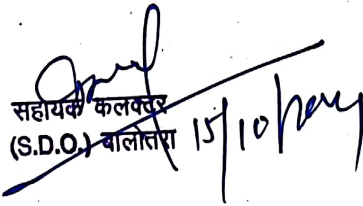 सहायक कलक्टर
(S.D.O.) बालोतरा 15/10/